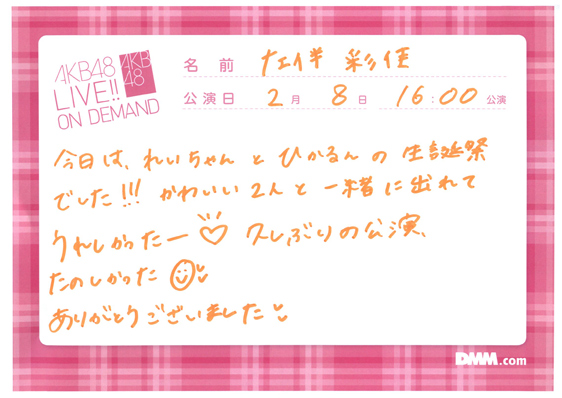 AKB48
LIVE!!
ON DEMAND
AKB
48
名前 佐伴 彩佳
公演日 2月 8日 16:00 公演
今日は、れいちゃん と ひかるん の 生誕祭
でした!!! かわいい 2人と 一緒に出れて
うれしかったー♡ 久しぶりの公演、
たのしかった
ありがとうございました
DMM.com